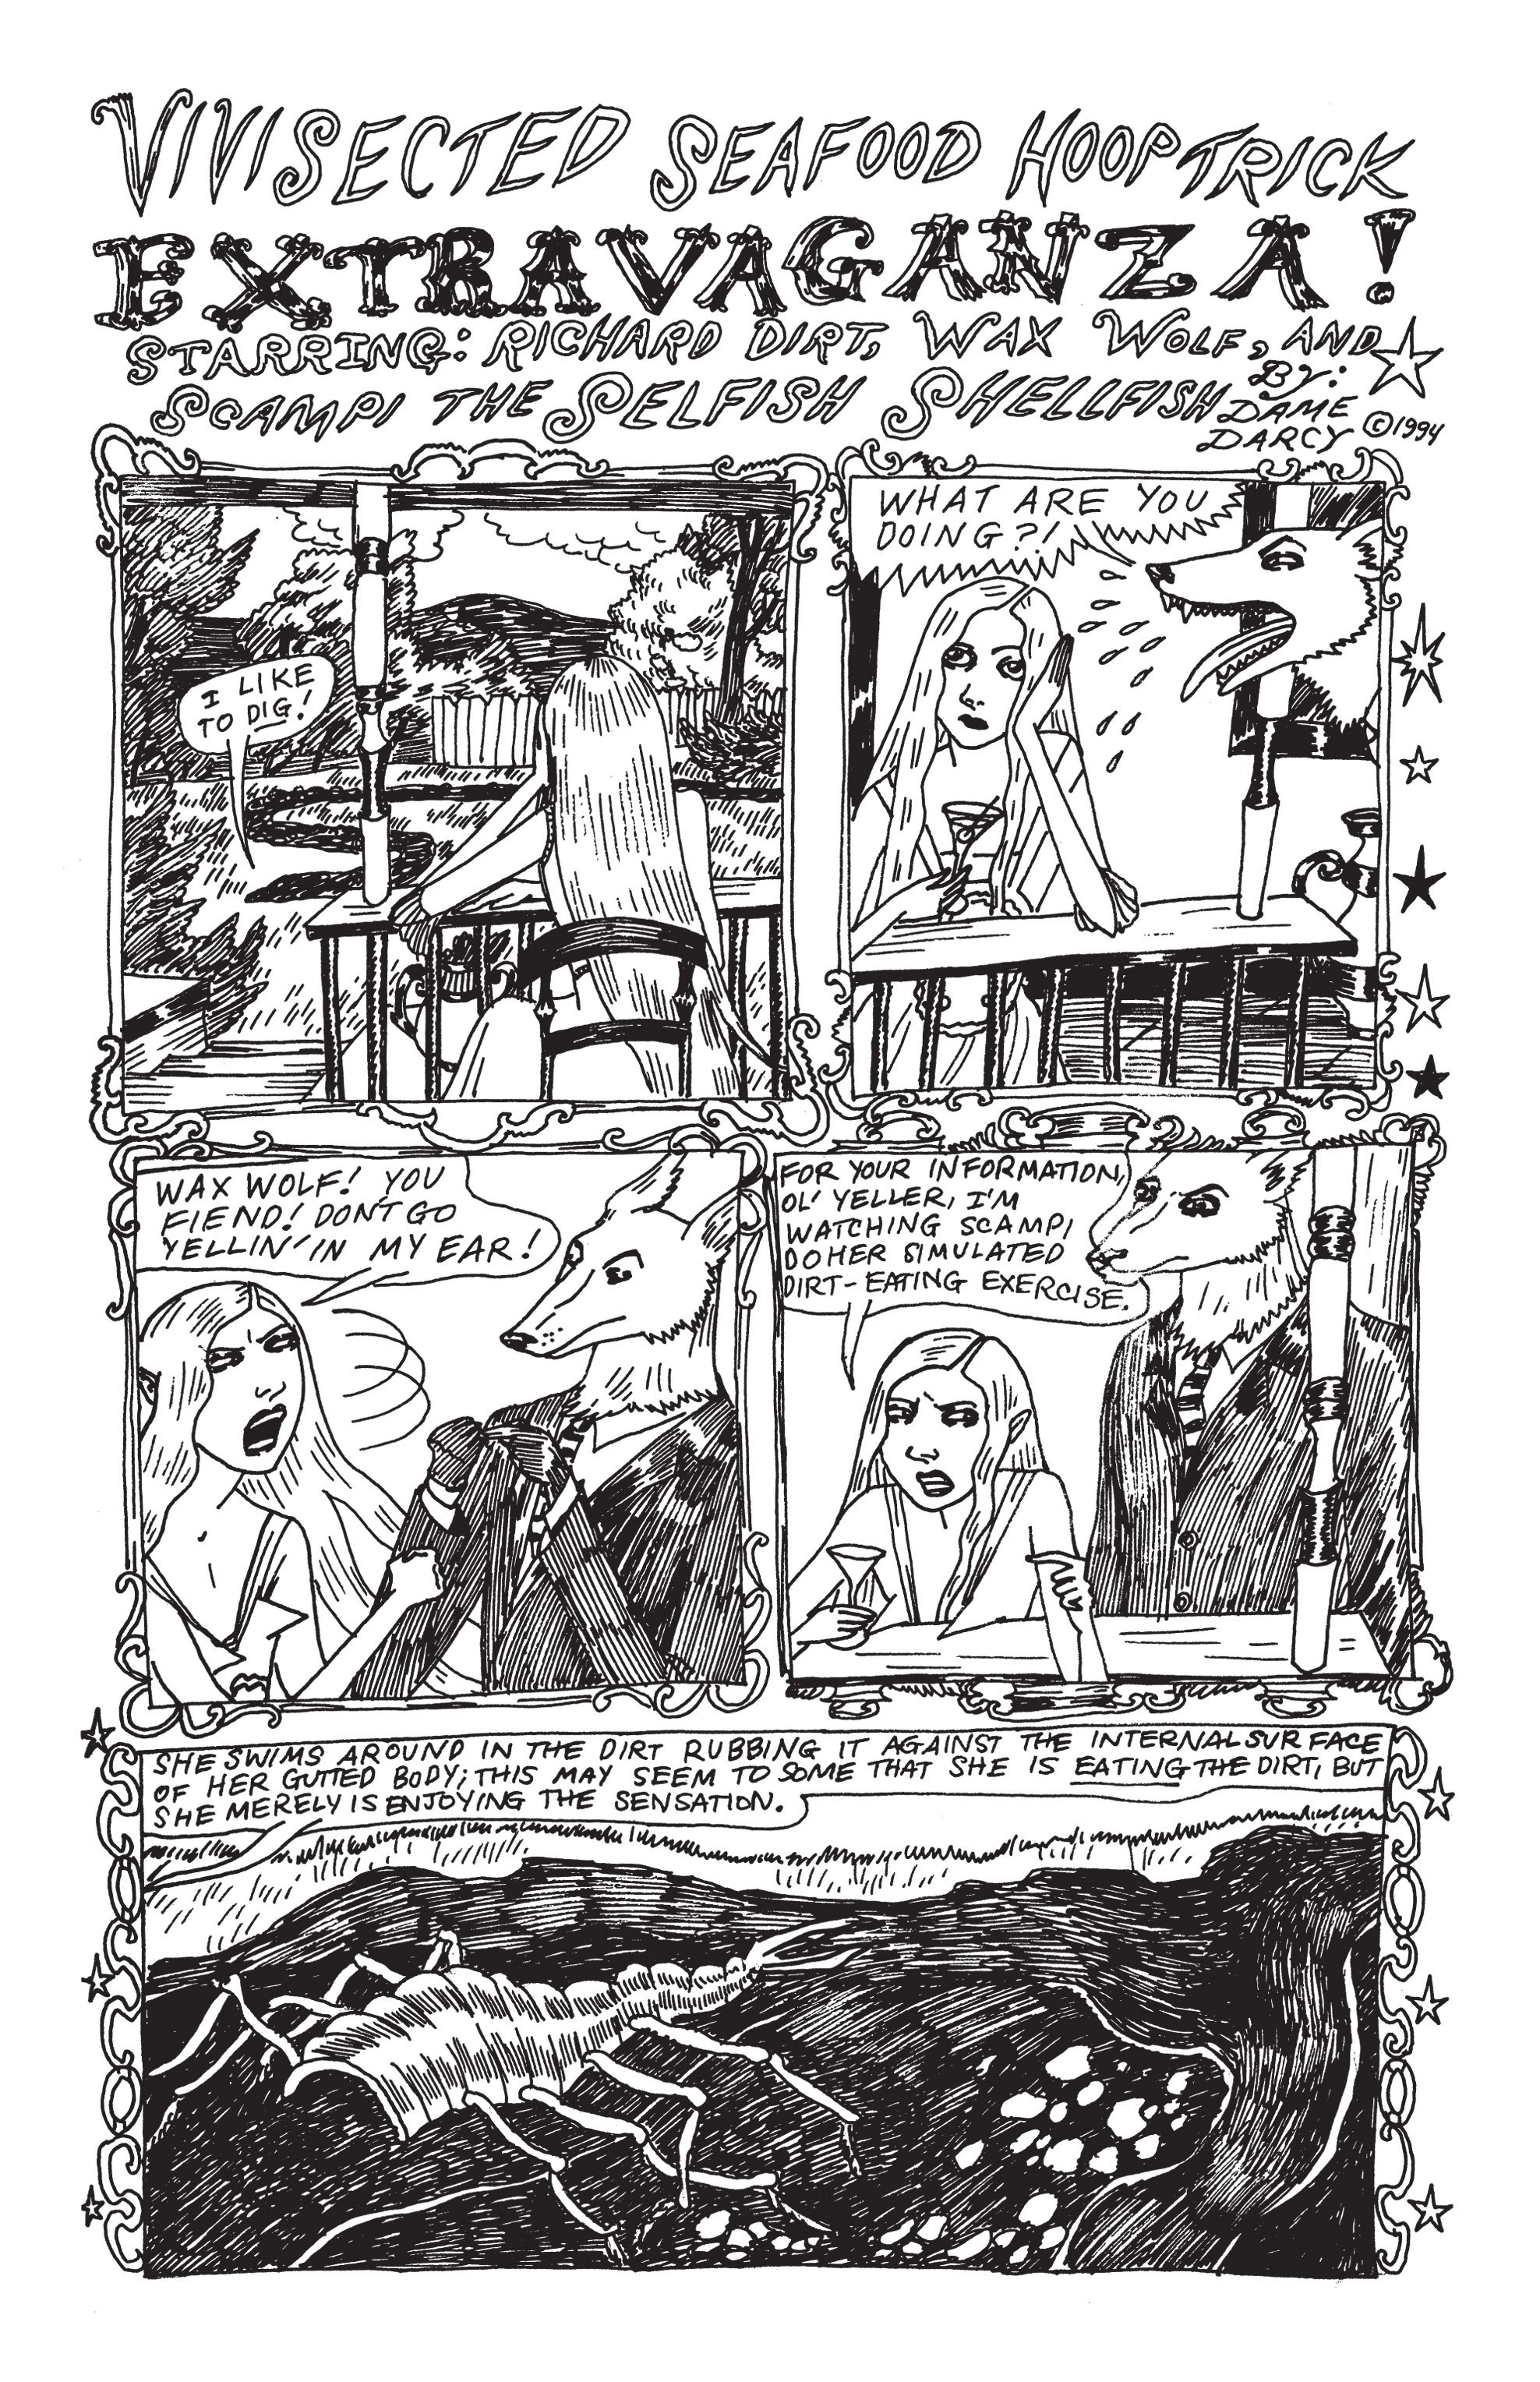 VIVISECTED SEAFOOD HOOP TRICK
EXTRAVAGANZA!
STARRING: RICHARD DIRT, WAX WOLF, AND
SCAMPI THE SELFISH SHELLFISH
BY:
DAME
DARCY ©1994
I LIKE
TO DIG!
WHAT ARE YOU
DOING?!
WAX WOLF! YOU
FIEND! DON'T GO
YELLIN' IN MY EAR!
FOR YOUR INFORMATION,
OL' YELLER, I'M
WATCHING SCAMPI
DO HER SIMULATED
DIRT-EATING EXERCISE.
SHE SWIMS AROUND IN THE DIRT RUBBING IT AGAINST THE INTERNAL SURFACE
OF HER GUTTED BODY; THIS MAY SEEM TO SOME THAT SHE IS EATING THE DIRT, BUT
SHE MERELY IS ENJOYING THE SENSATION.